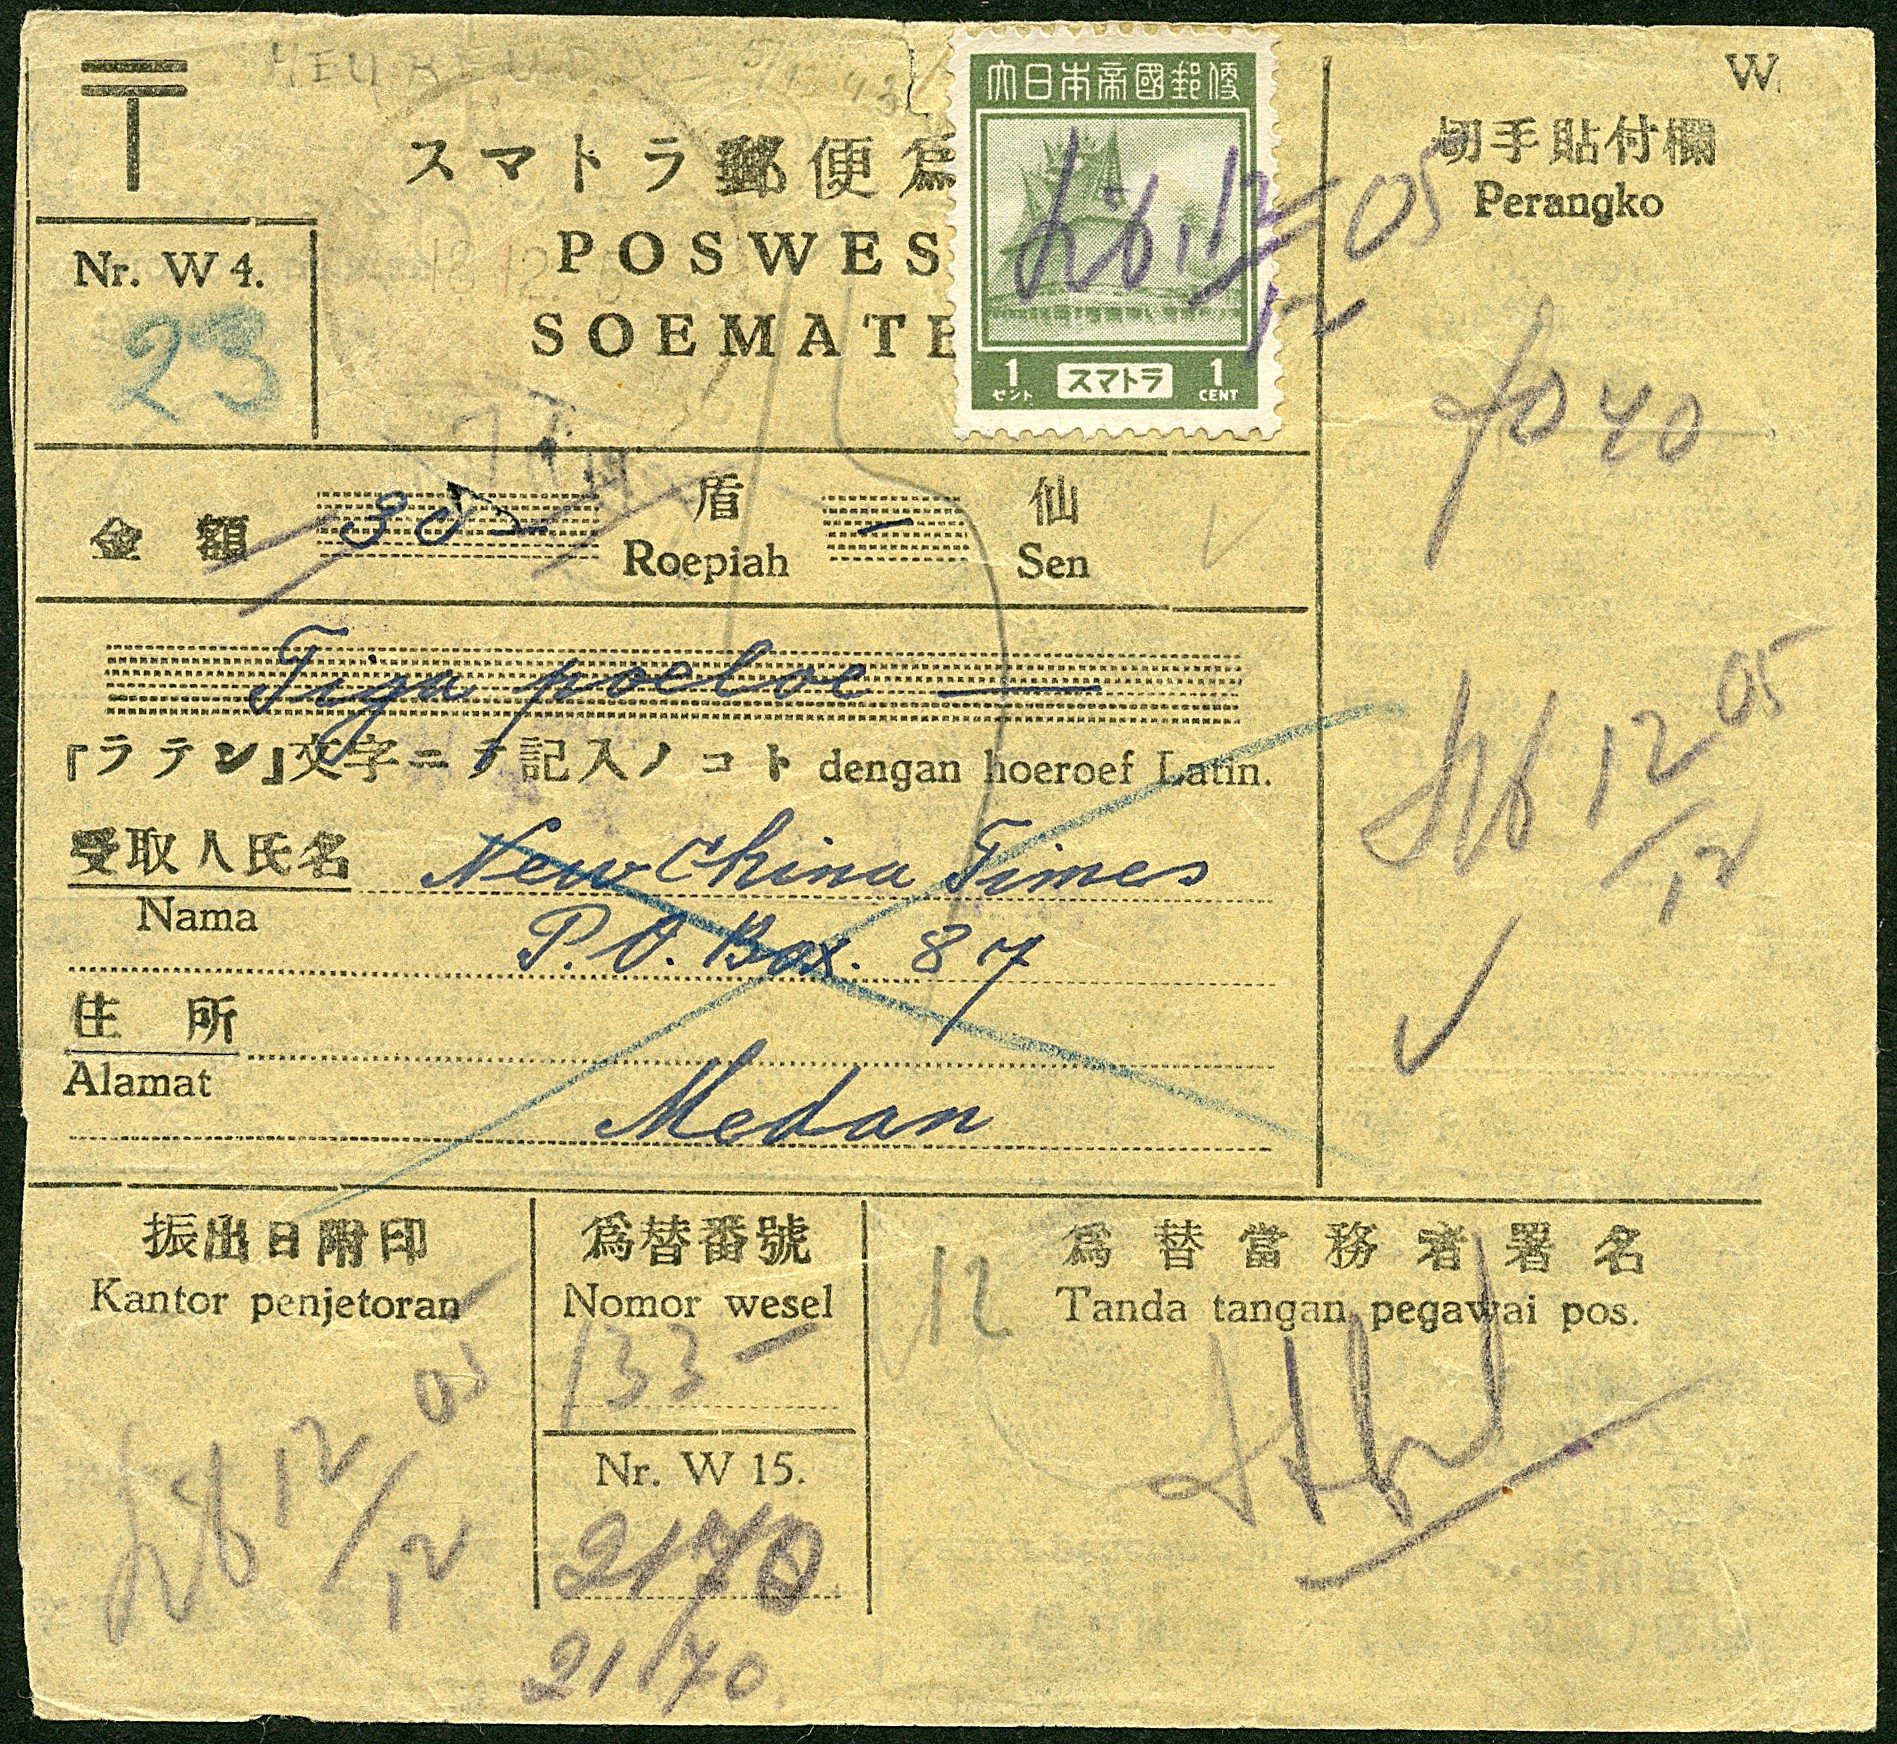 W
〒
スマトラ郵便爲
POSWES
SOEMATE
Nr. W 4.
23
大日本帝國郵便
1 スマトラ 1
セント CENT
切手貼付欄
Perangko
12 05
12
f 0 40
金額 30 — 盾 — 仙
Roepiah Sen
Tiga poeloe —
『ラテン』文字ニテ記入ノコト dengan hoeroef Latin.
12 05
12
受取人氏名 New China Times
Nama
P.O. Box. 87
住所
Alamat
Medan
振出日附印
Kantor penjetoran
12 05
12
爲替番號
Nomor wesel
133 —
Nr. W 15.
2170
2170.
12
爲替當務者署名
Tanda tangan pegawai pos.